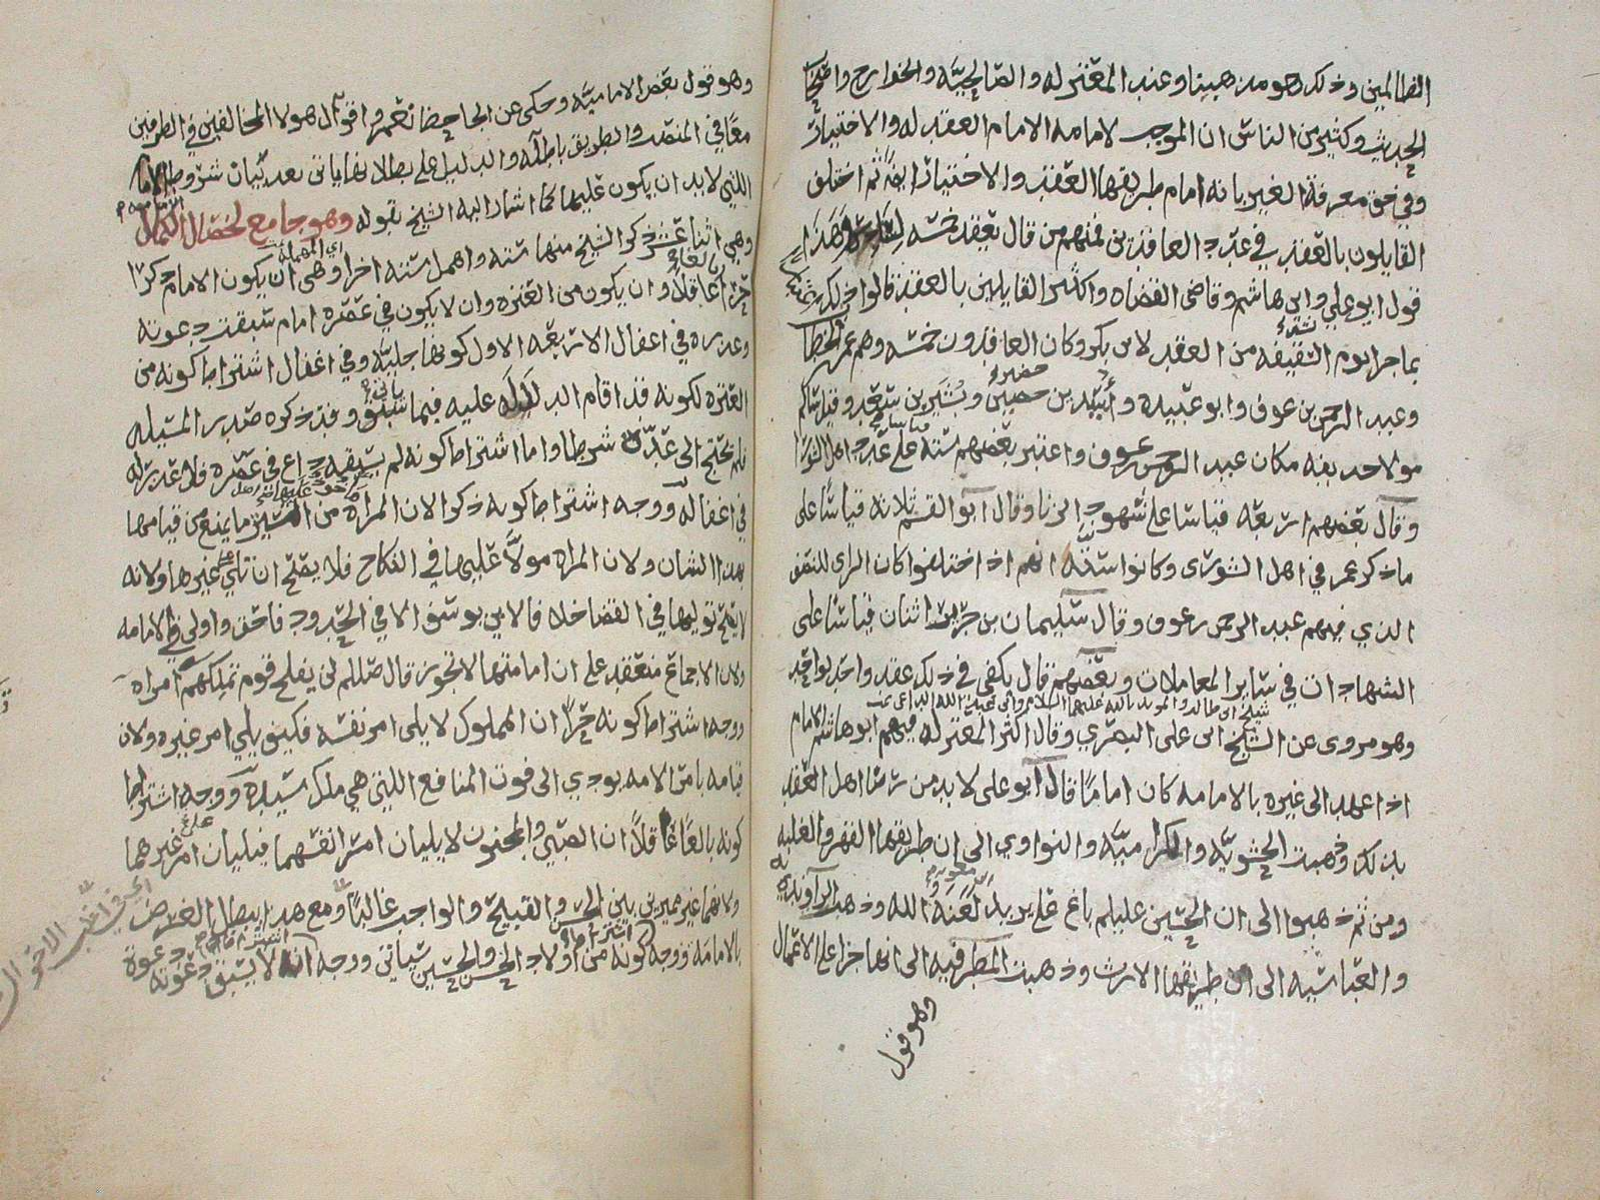 الظالمين وذلك هو مذهبنا وعند المعتزله والصالحيه والخوارج واصحاب
الحديث وكثير من الناس ان الموجب لامامه الامام العقد له والاختيار
وفي فرق معرفة الغير بانه امام طريقها العقد والاختيار ايضا ثم اختلف
القايلون بالعقد في عدد العاقدين فمنهم من قال يعقد خمسه لسادس وهذا
قول ابو علي وابي هاشم وقاضي القضاه واكثر القايلين بالعقد قالوا وذلك
بما جرا يوم السقيفه من العقد لابي بكر وكان العاقدون خمسه وهم عمر بن الخطاب
وعبد الرحمن بن عوف وابو عبيده وأسيد بن حضير وبشير بن سعد وقيل سالم
مولا حذيفه مكان عبد الرحمن بن عوف واعتبر بعضهم سته على عدد اهل الشورا
وقال بعضهم اربعه قياسا على شهود الزنا وقال ابو القسم ثلاثه قياسا على
ما ذكر عمر في اهل الشورى وكانوا سته انهم اذا اختلفوا كان الراى للنصف
الذي فيهم عبد الرحمن بن عوف وقال سليمان بن جرير اثنان قياسا على
الشهادات في سائر المعاملات وبعضهم قال يكفي في ذلك عقد واحد لواحد
وهو مروى عن الشيخ ابي علي البصري وقال اكثر المعتزله فيهم ابو هاشم الامام
اذا عهد الى غيره بالامامه كان اماما قال ابو علي لا بد من رضا اهل العقد
بذلك وذهبت الحشويه والكراميه والنواوي الى ان طريقها القهر والغلبه
ومن ثم ذهبوا الى ان الحسين عليلم باغ على يزيد لعنه الله وذهب الراونديه
والعباسيه الى ان طريقها الارث وذهبت المطرفيه الى انها جزا على الاعمال
وهو قول
وهو قول بعض الاماميه وحكى عن الجاحظ نعم واقوال هولا المخالفين في الطرفين
معا في المنصب والطريق باطله والدليل على بطلانها ياتي بعد بيان شروط الامام
اللتي لا بد ان يكون عليها كما اشار اليه الشيخ بقوله وهو جامع لخصال الكمال
وهي اثنا عشر ذكر الشيخ منها سته واهمل سته اخرا وهي ان يكون الامام ذكرا
حرا بالغا عاقلا وان يكون من العتره وان لا يكون في عصره امام سبقت دعوته
وعذره في اغفال الاربعه الاول كونها جليه وفي اغفال اشتراط كونه من
العتره لكونه قد اقام الدلاله عليه فيما سبق وقد ذكره صدر المسئله
فلم يحتج الى عده شرطا واما اشتراط كونه لم يسبقه داع في عصره فلا عذر له
في اغفاله ووجه اشتراط كونه ذكرا لان المراه ما يمنع من قيامها
بهذا الشان ولان المراه مولا عليها في النكاح فلا يصح ان تلي غيرها ولانه
لا يصح توليها في القضا خلافا لابي يوسف الا في الحدود فاحق واولى في الامامه
ولان الاجماع منعقد على ان امامتها لا تجوز قال صللم لن يفلح قوم تملكهم امراه
ووجه اشتراط كونه حرا ان المملوك لا يلي امر نفسه فكيف يلي امر غيره ولان
قيامه بامر الامه يودي الى فوت المنافع اللتي هي ملك سيده ووجه اشتراط
كونه بالغا عاقلا ان الصبي والمجنون لا يليان امر انفسهما فيليان امر غيرهما
ولانهما غير مميزين بين الحسن والقبيح والواجب غالبا ومع هذا يبطل الغرض
بالامامه ووجه كونه من اولاد الحسن والحسين سياتي ووجه انه لا يسبق دعوته دعوة